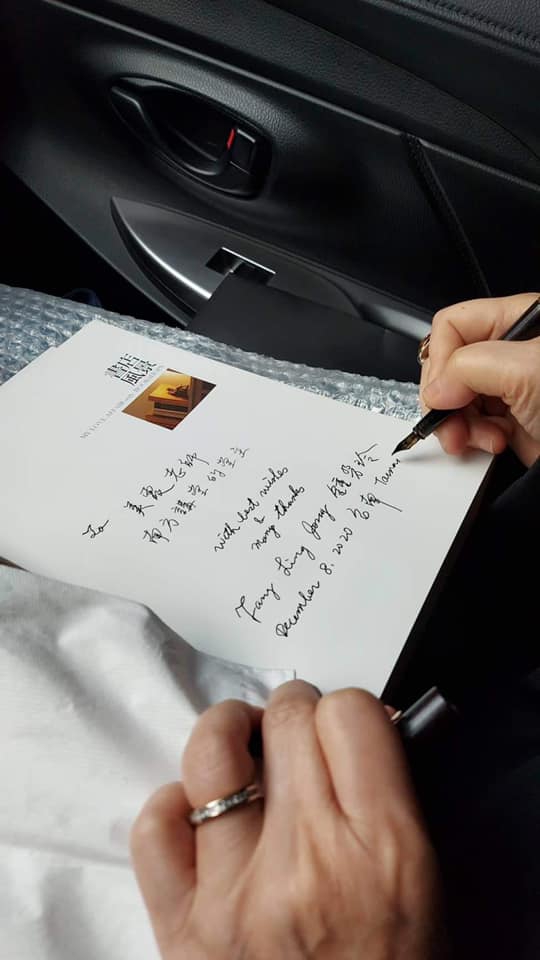 書店
風景
MY LOVE AFFAIR with BOOKSTORES
To 美霞老師
南方講堂的堂主
with best wishes
&
many thanks
Fang Ling Jong 鍾芳玲
December 8, 2020 台南 Tainan